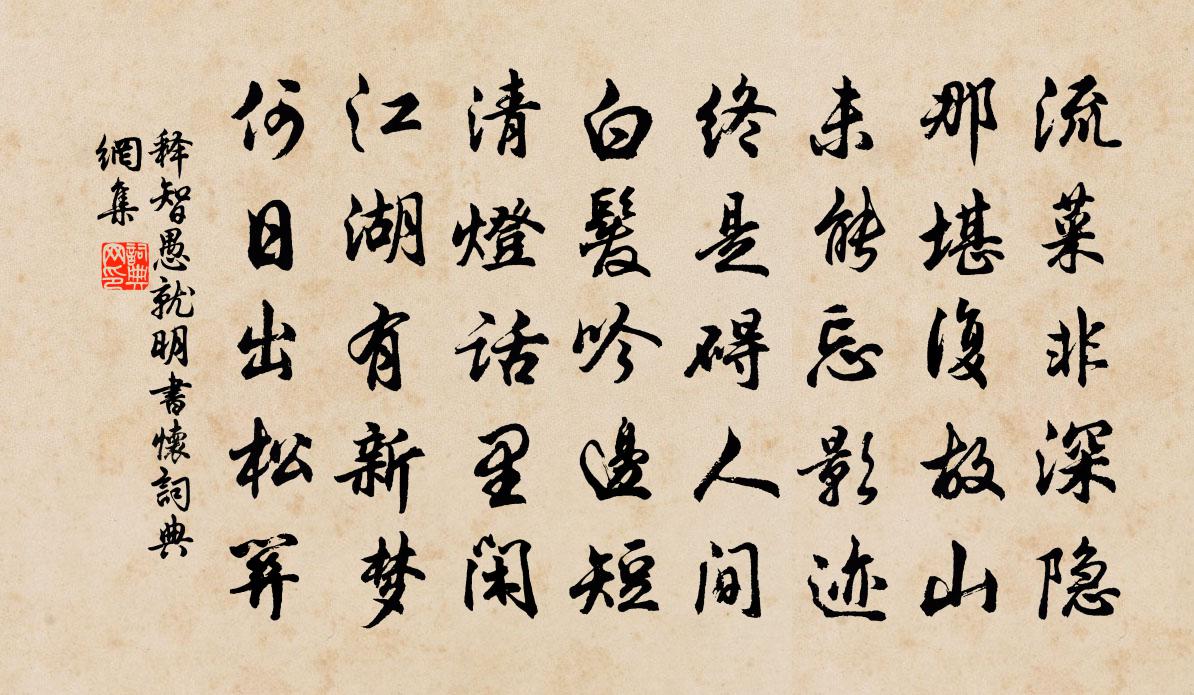 流菜非深隐
那堪復故山
未能忘影迹
终是碍人间
白髮吟邊短
清燈话里闲
江湖有新梦
何日出松关
释智愚就明書懷詞典
網集
詞典
网印